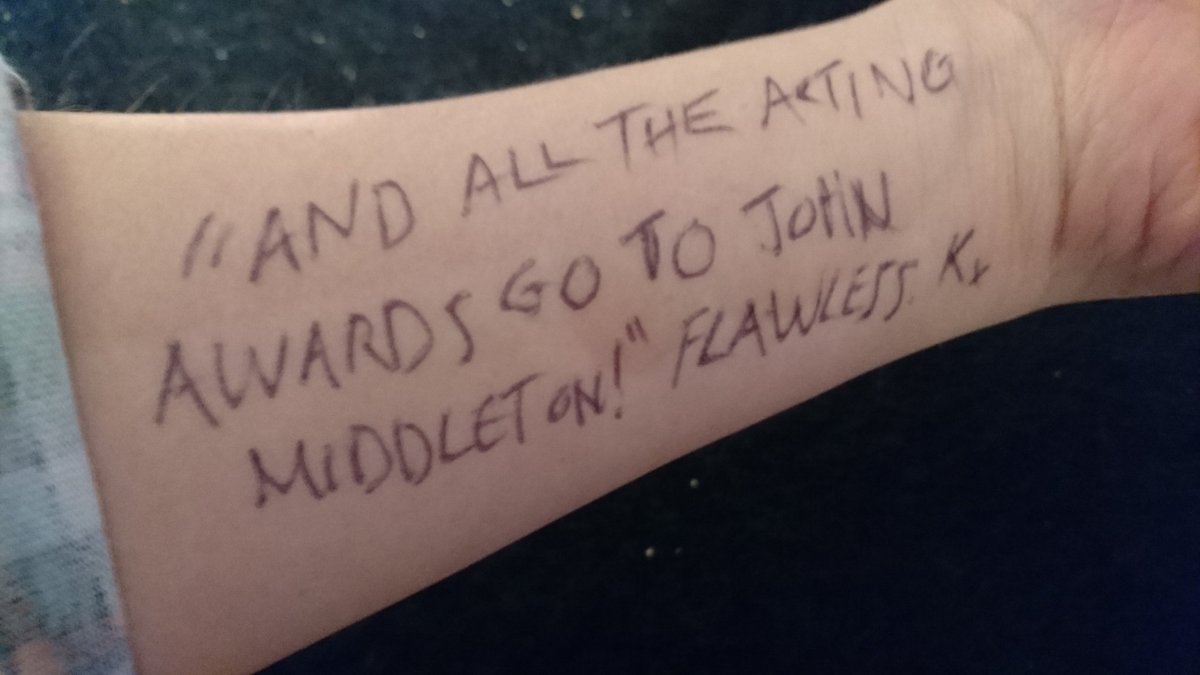 "AND ALL THE ACTING
AWARDS GO TO JOHN
MIDDLETON!" FLAWLESS. Kx